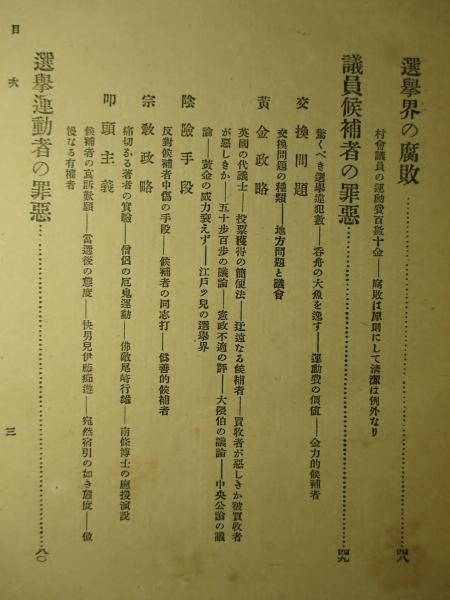 選擧界の腐敗……四八
村會議員の運動費百數十金――腐敗は原則にして淸潔は例外なり
議員候補者の罪惡……四九
驚くべき選擧違犯數――呑舟の大魚を逸す――運動費の價値――金力的候補者
交換問題
交換問題の種類――地方問題と議會
黃金政略
英國の代議士――投票獲得の簡便法――迂遠なる候補者――買收者が惡しきか被買收者
が惡しきか――五十步百步の議論――憲政不適の評――大隈伯の議論――中央公論の議
論――黃金の威力衰えず――江戶ッ兒の選擧界
陰險手段
反對候補者中傷の手段――候補者の同志打――僞善的候補者
宗敎政略
痛切なる著者の實驗――僧侶の厄鬼運動――佛敵尾崎行雄――南條博士の應援演說
叩頭主義
候補者の哀訴歎願――當選後の態度――快男兒伊藤痴遊――宛然宿引の如き態度――傲
慢なる有權者
選擧運動者の罪惡……八〇
目次
三